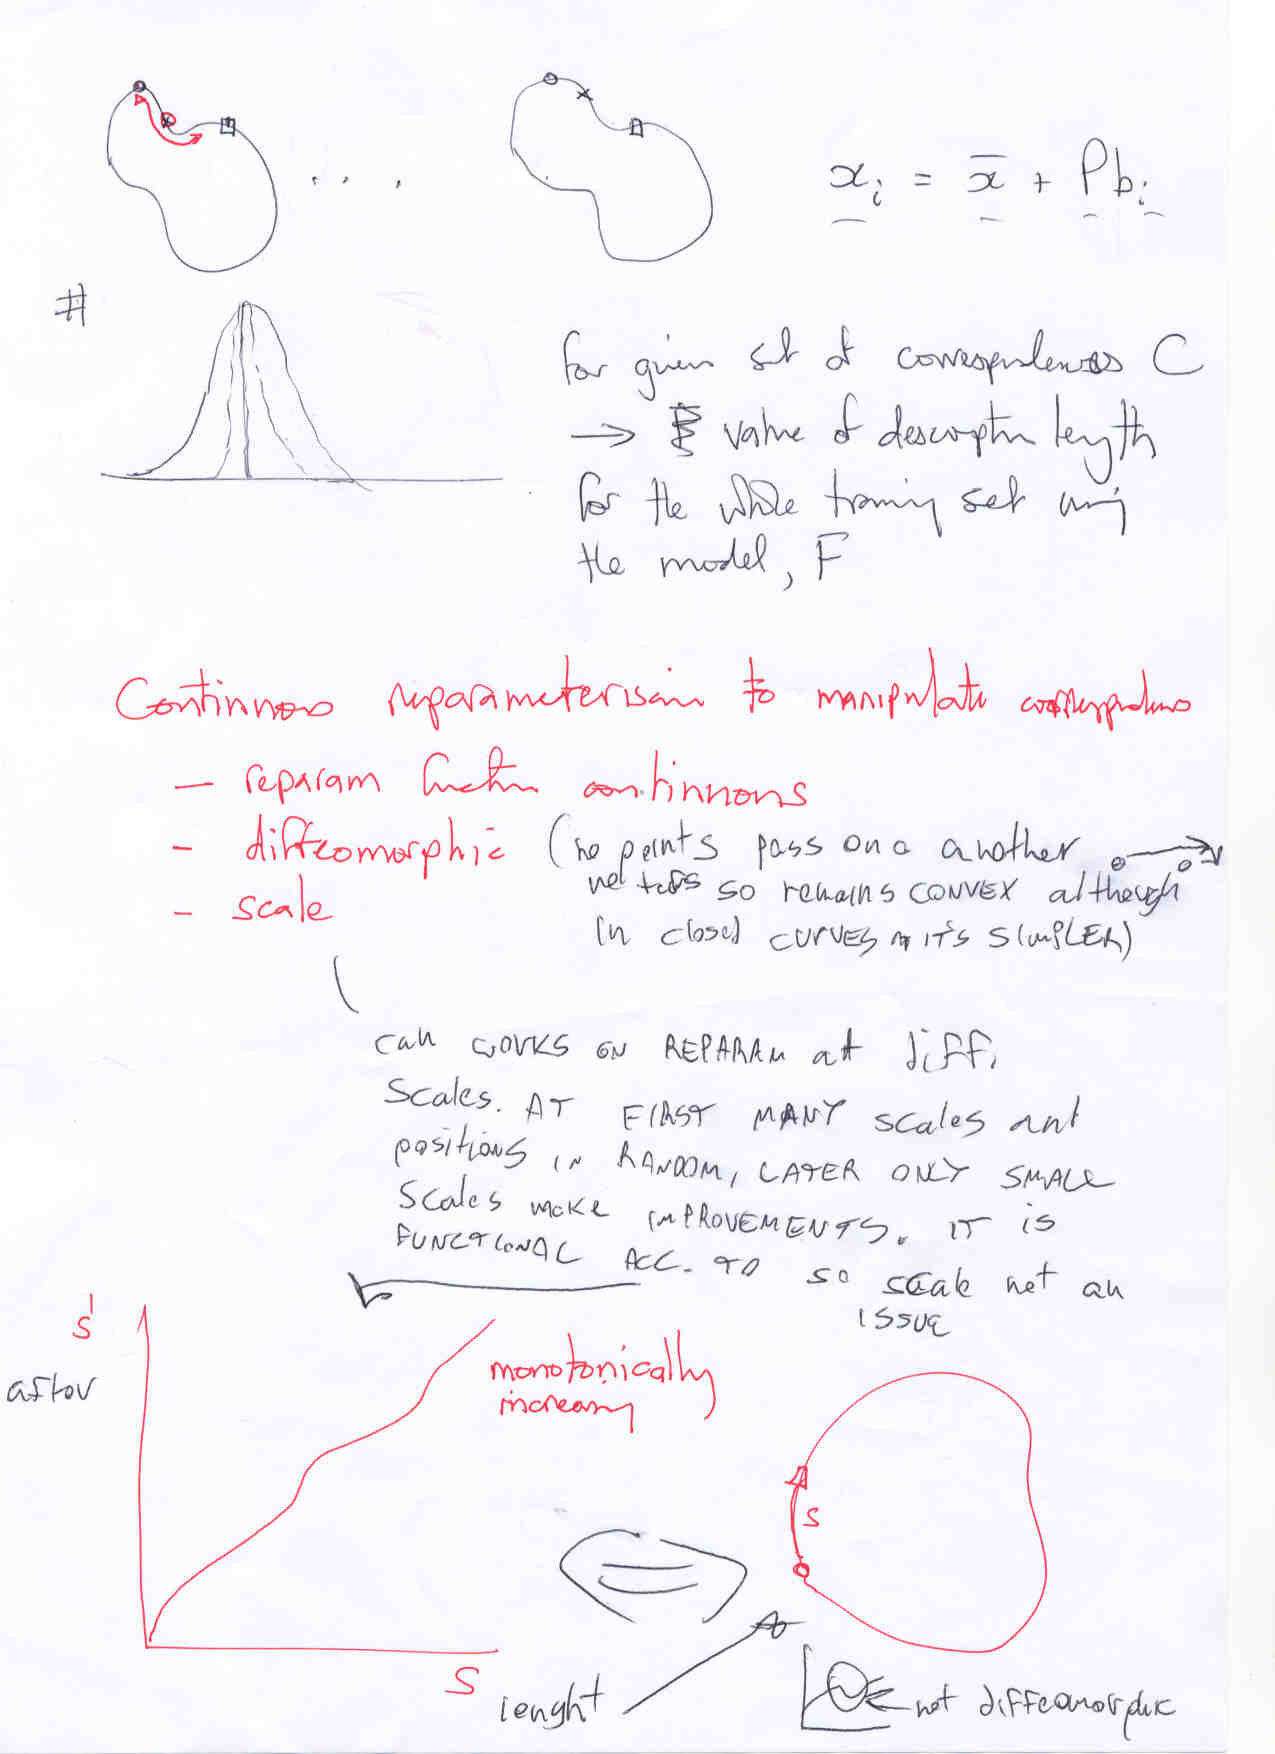 x_i = x̄ + P b_i
#
For given set of correspondences C
→ value of description length
for the whole training set using
the model, F
Continuous reparameterisation to manipulate correspondences
- reparam function continuous
- diffeomorphic (no points pass one another
so remains CONVEX although
in closed CURVES IT'S SIMPLER)
- scale
can WORKS ON REPARAM at diff.
Scales. AT FIRST MANY scales ant
positions IN RANDOM, LATER ONLY SMALL
Scales make IMPROVEMENTS. IT is
FUNCTIONAL ACC. TO so scale not an
ISSUE
s'
after
monotonically
increasing
s
S
lenght
not diffeomorphic